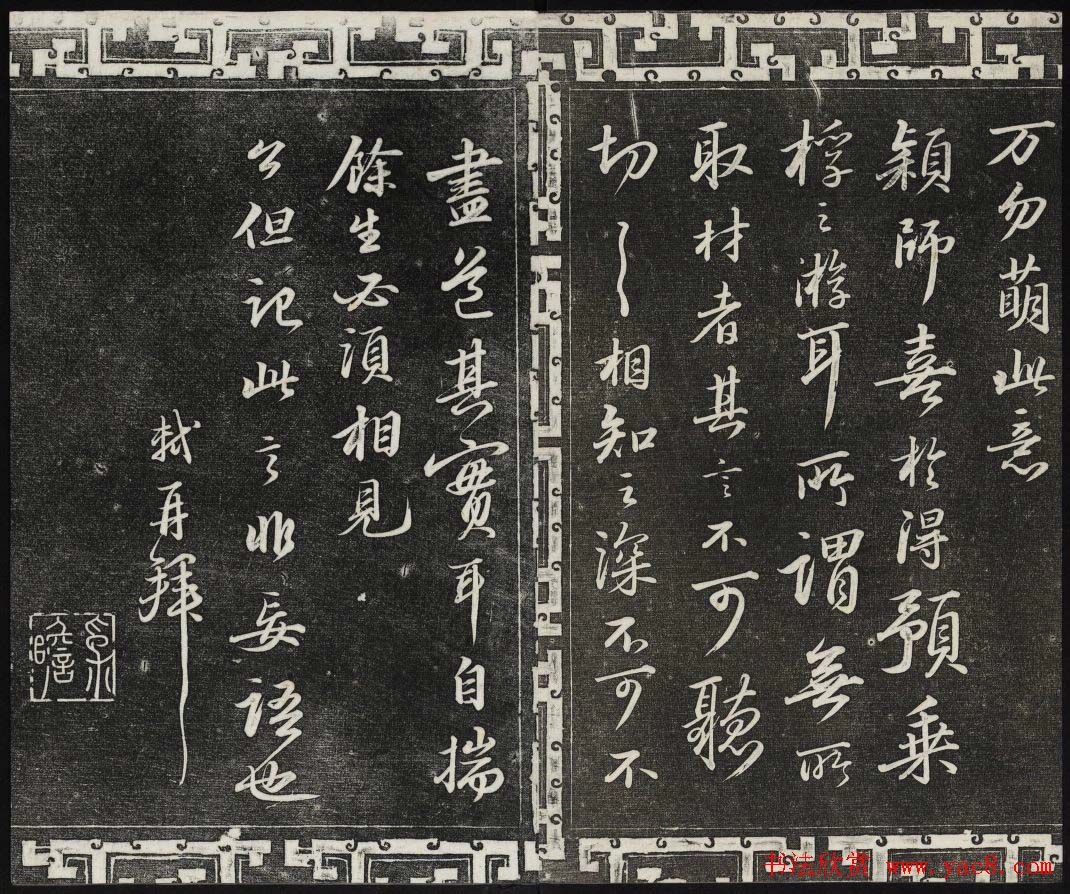 万勿萌此意
穎師喜於得預乗
桴之游耳所謂無所
取材者其言不可聽
切切相知之深不可不
盡道其實耳自揣
餘生必須相見
公但記此言非妄語也
軾再拜
書法欣赏 www.yac8.com